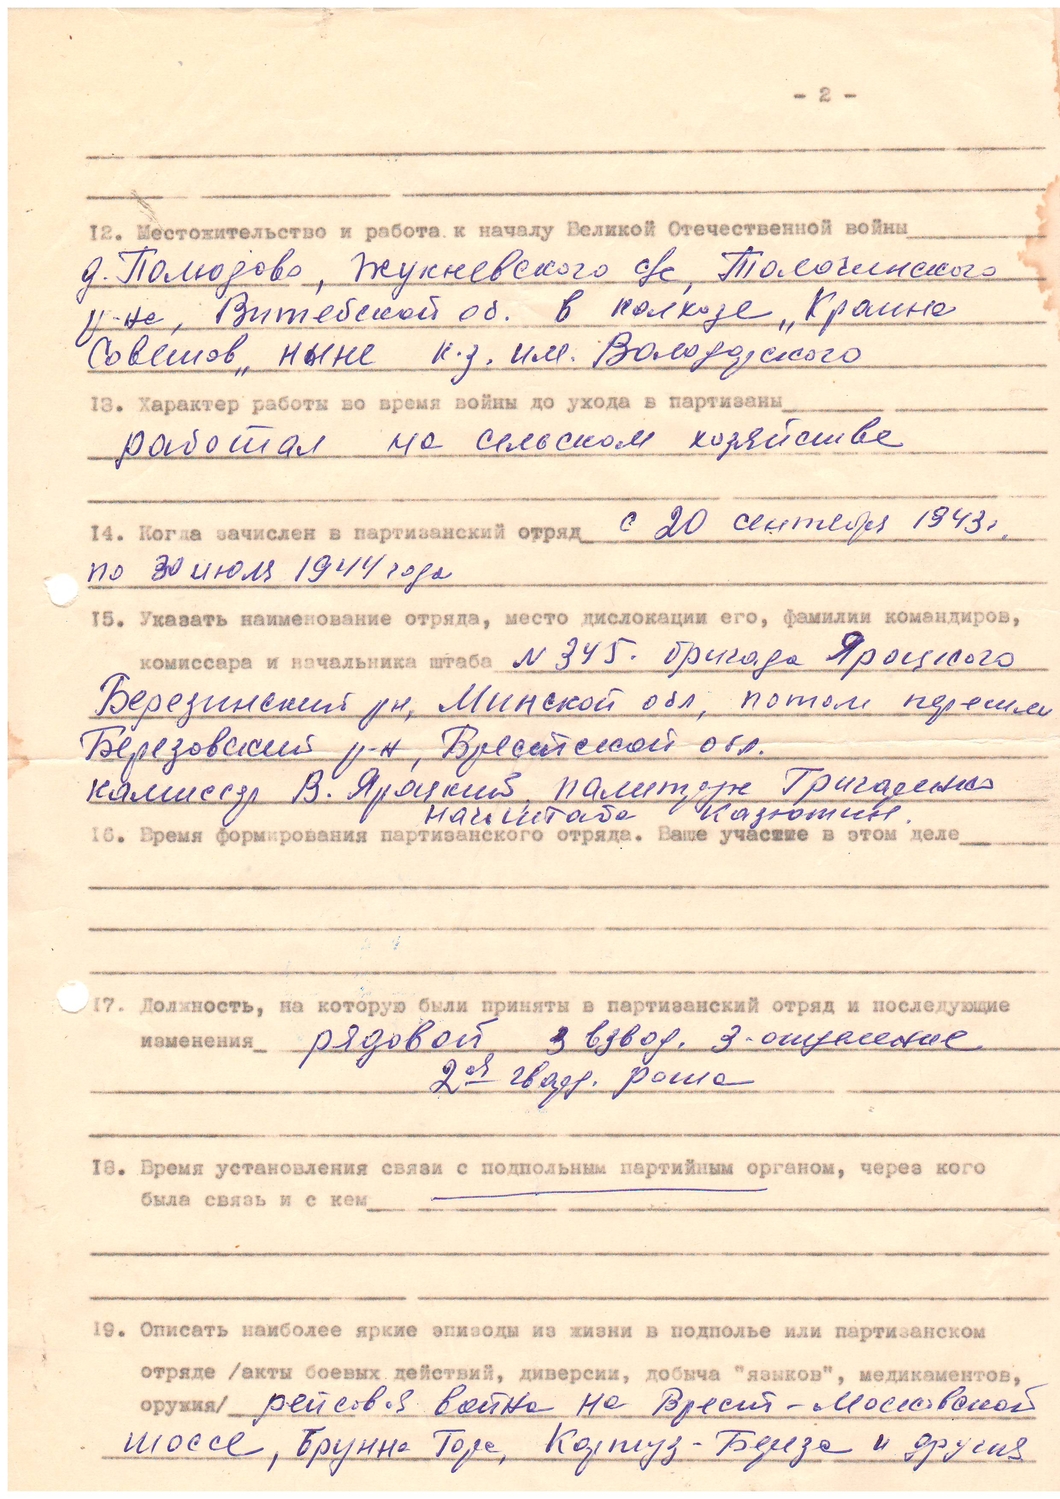 - 2 -
12. Местожительство и работа к началу Великой Отечественной войны
д. Полюдово, Жукневского с/с, Толочинского
р-на, Витебской об. в колхозе „Краина
Советов„ ныне к.з. им. Володарского
13. Характер работы во время войны до ухода в партизаны
работал на сельском хозяйстве
14. Когда зачислен в партизанский отряд с 20 сентября 1943г.
по 30 июля 1944 года
15. Указать наименование отряда, место дислокации его, фамилии командиров,
комиссара и начальника штаба N 345. бригада Яроцкого
Березинский рн, Минской обл, потом перешли
Березовский р-н, Брестской обл.
камиссар В. Яроцкий, палитрук Григоренко
начштаба Казюткин.
16. Время формирования партизанского отряда. Ваше участие в этом деле
17. Должность, на которую были приняты в партизанский отряд и последующие
изменения рядовой 3 взвод. 3-отделение
2ая гвард. рота
18. Время установления связи с подпольным партийным органом, через кого
была связь и с кем
19. Описать наиболее яркие эпизоды из жизни в подполье или партизанском
отряде /акты боевых действий, диверсии, добыча "языков", медикаментов,
оружия/ рейсовая война на Брест-Московской
шоссе, Брунна Гора, Картуз-Береза и другия